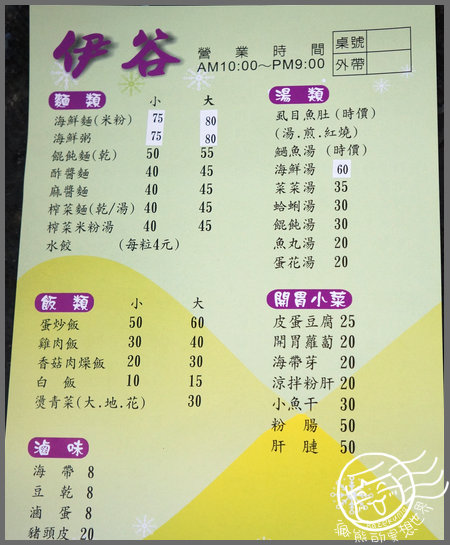 伊谷
營業時間
AM10:00～PM9:00
桌號
外帶
麵類 小 大
海鮮麵(米粉) 75 80
海鮮粥 75 80
餛飩麵(乾) 50 55
酢醬麵 40 45
麻醬麵 40 45
榨菜麵(乾/湯) 40 45
榨菜米粉湯 40 45
水餃 (每粒4元)
飯類 小 大
蛋炒飯 50 60
雞肉飯 30 40
香菇肉燥飯 20 30
白飯 10 15
燙青菜(大.地.花) 30
滷味
海帶 8
豆乾 8
滷蛋 8
豬頭皮 20
湯類
虱目魚肚(時價)
(湯.煎.紅燒)
魚湯 (時價)
海鮮湯 60
菜菜湯 35
蛤蜊湯 30
餛飩湯 30
魚丸湯 20
蛋花湯 20
開胃小菜
皮蛋豆腐 25
開胃蘿蔔 20
海帶芽 20
涼拌粉肝 20
小魚干 30
粉腸 50
肝腱 50
瘋熊的異想世界